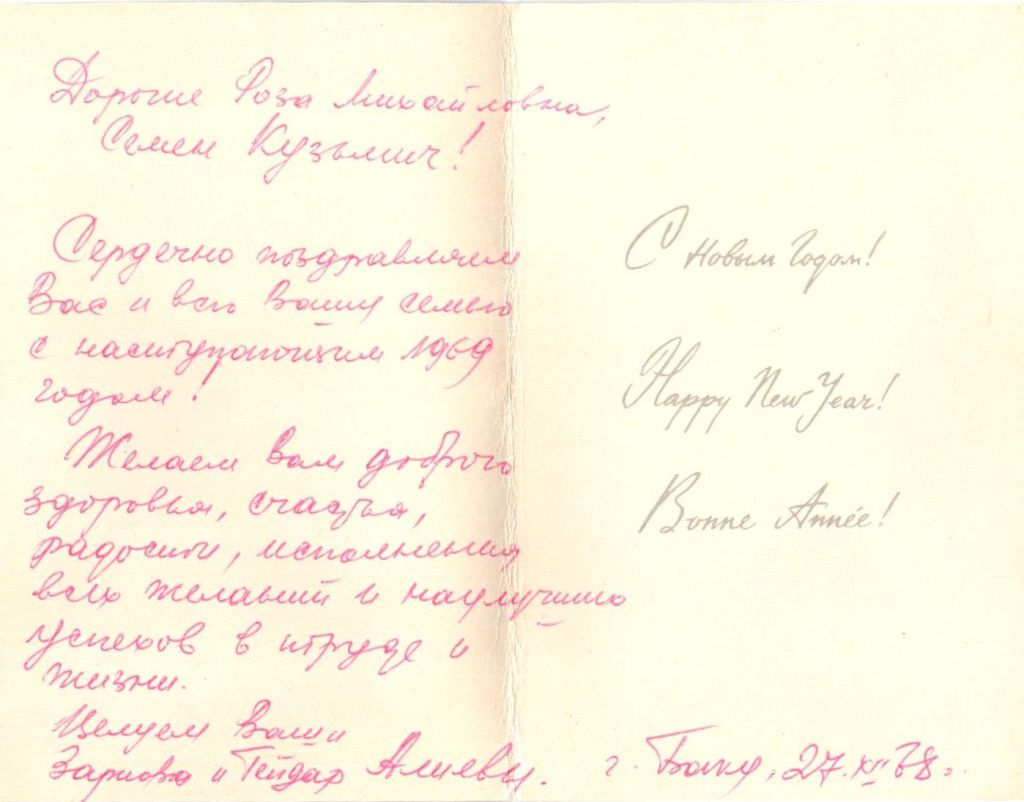 Дорогие Роза Михайловна,
Семен Кузьмич!
Сердечно поздравляем
Вас и всю Вашу семью
с наступающим 1969
годом!
Желаем Вам доброго
здоровья, счастья,
радости, исполнения
всех желаний и наилучших
успехов в труде и
жизни.
Целуем Ваши
Зарифа и Гейдар Алиевы.
С Новым Годом!
Happy New Year!
Bonne Année!
г. Баку, 27.XII 68г.